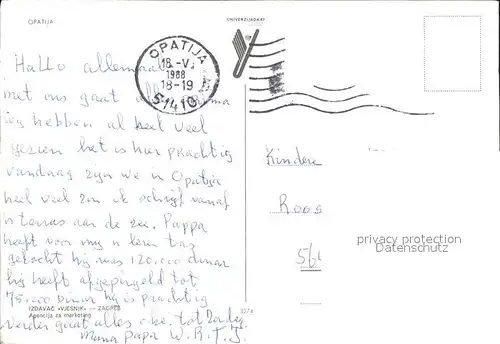 OPATIJA
UNIVERZIJADA 87
Hallo allemaal
OPATIJA
18.-V.
1988
18-19
51410
met ons gaat alles prima
wij hebben al heel veel
gezien het is hier prachtig
vandaag zijn we in Opatija
heel veel zon ik schrijf vanaf
n terras aan de zee. Pappa
heeft voor mijn n leren tas
gekocht hij was 120.000 dinar
hij heeft afgepingeld tot
75.000 Dinar hij is prachtig
verder gaat alles oke. tot Zondag
Mama papa W. R. T. J.
Kindere
Roos
56
privacy protection
Datenschutz
IZDAVAČ »VJESNIK« — ZAGREB
Agencija za marketing